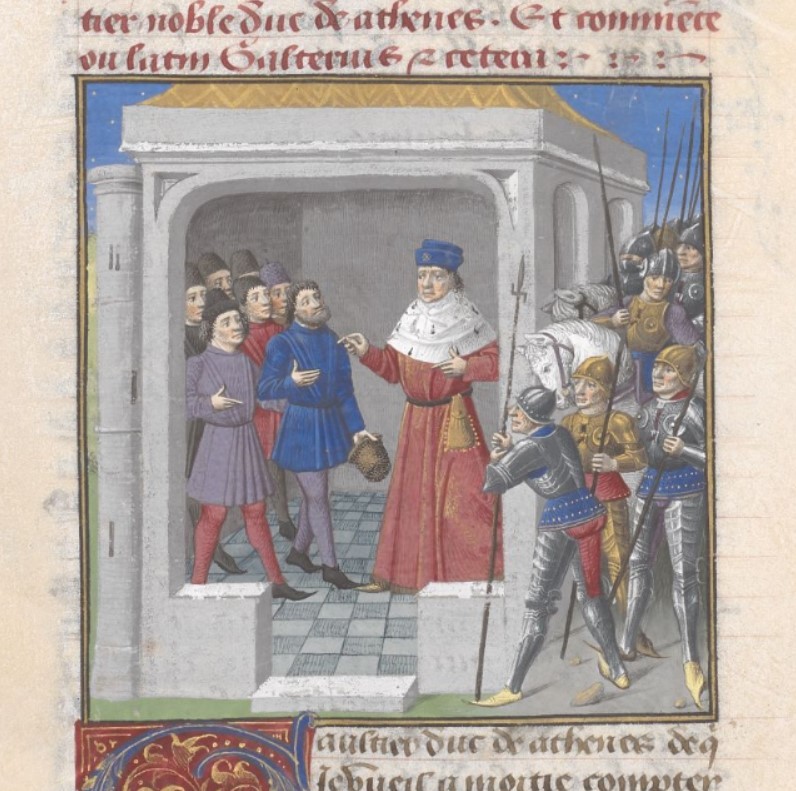 tier noble duc de athenes. Et commēce
ou latin Galterius & cetera
aultier duc de athenes de q̄
Je vueil a moitie compter